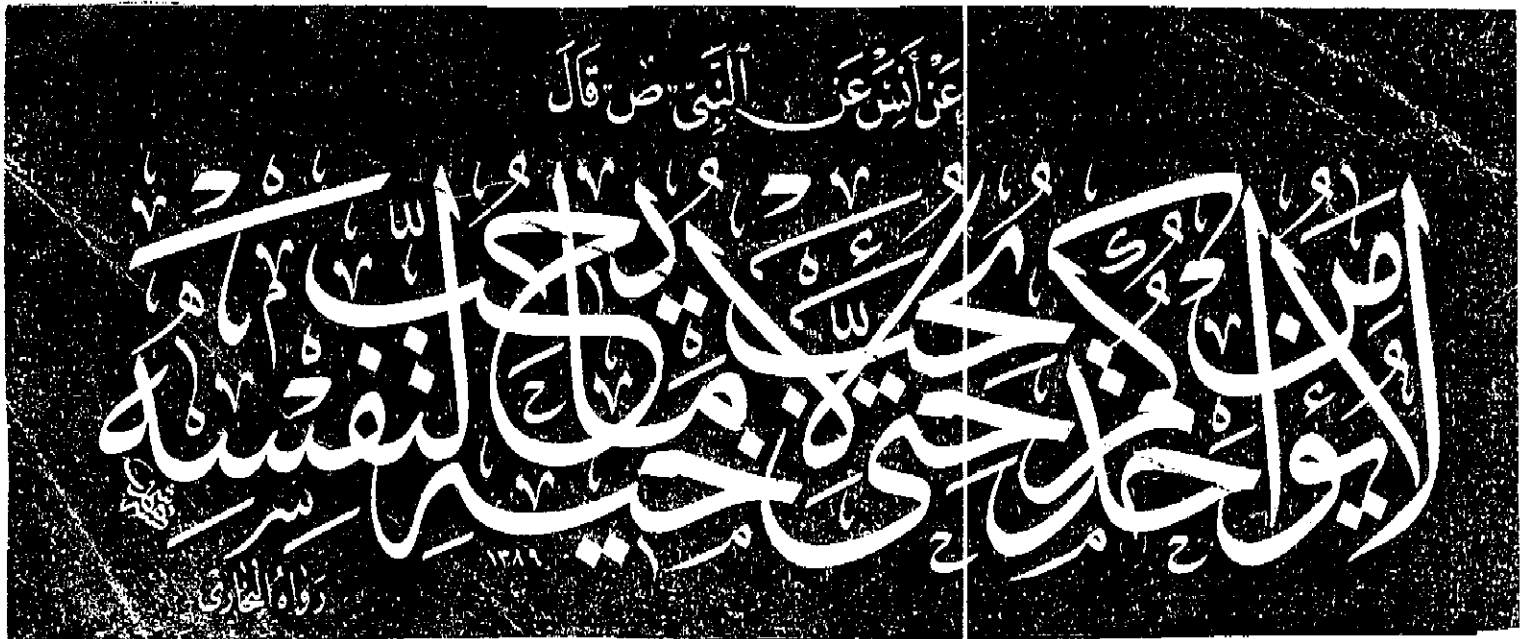 عَنْ أَنَسٍ عَنِ ٱلنَّبِيِّ ص قَالَ
لَا يُؤْمِنُ أَحَدُكُمْ حَتَّى يُحِبَّ لِأَخِيهِ مَا يُحِبُّ لِنَفْسِهِ
١٣٨٩
رَوَاهُ الْبُخَارِي